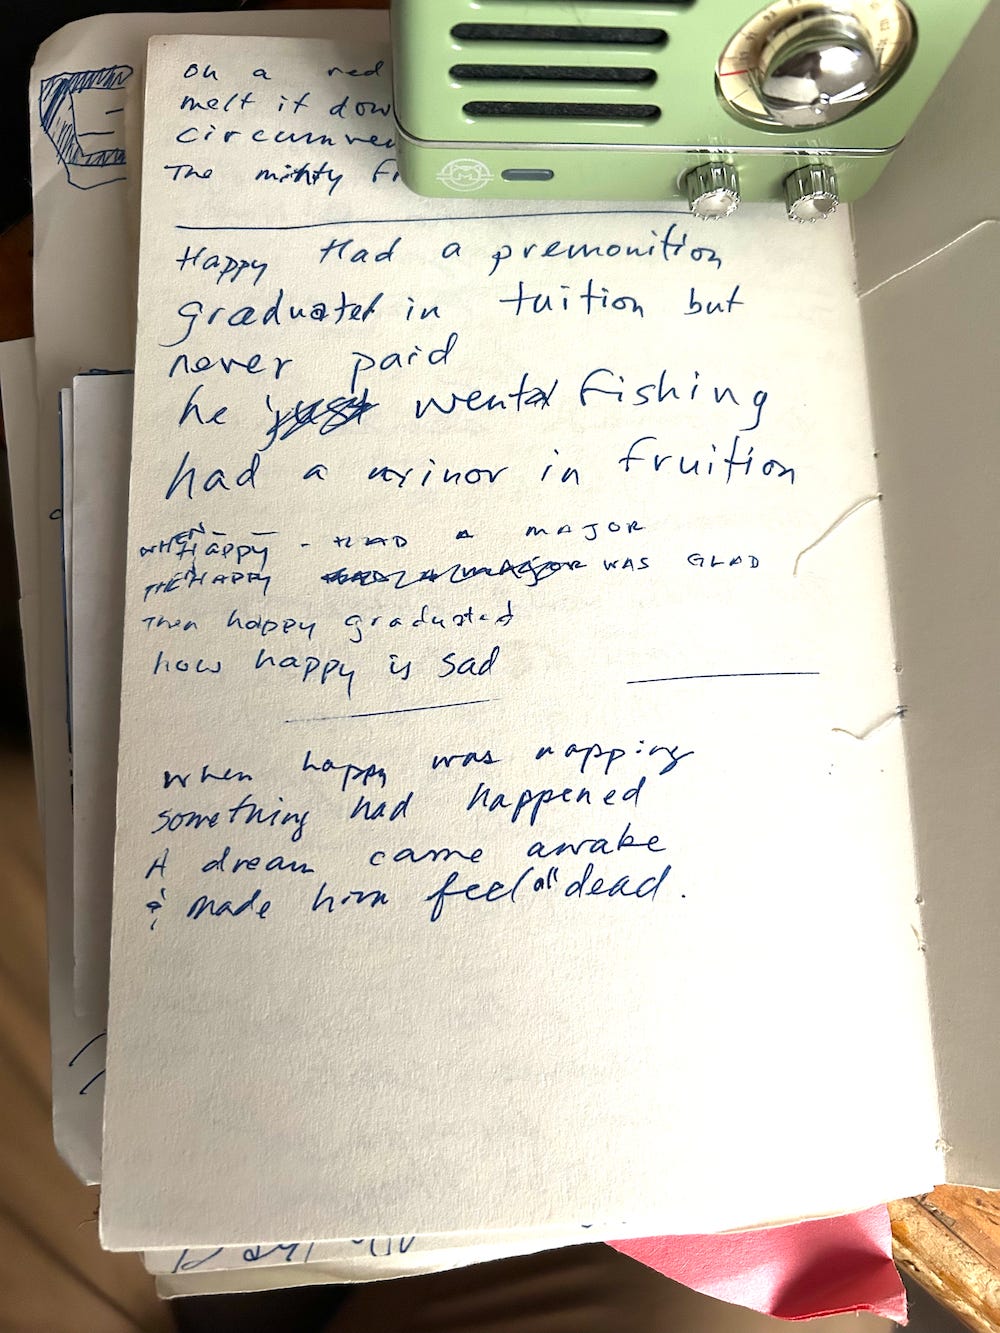 on a red
melt it dow
circumve
The mighty fr
Happy Had a premonition
graduated in tuition but
never paid
he just went fishing
had a minor in fruition
WHEN HAPPY - HAD A MAJOR
THEN HAPPY HAD A MAJOR WAS GLAD
Then happy graduated
now happy is sad
when happy was napping
something had happened
A dream came awake
& made him feel all dead.